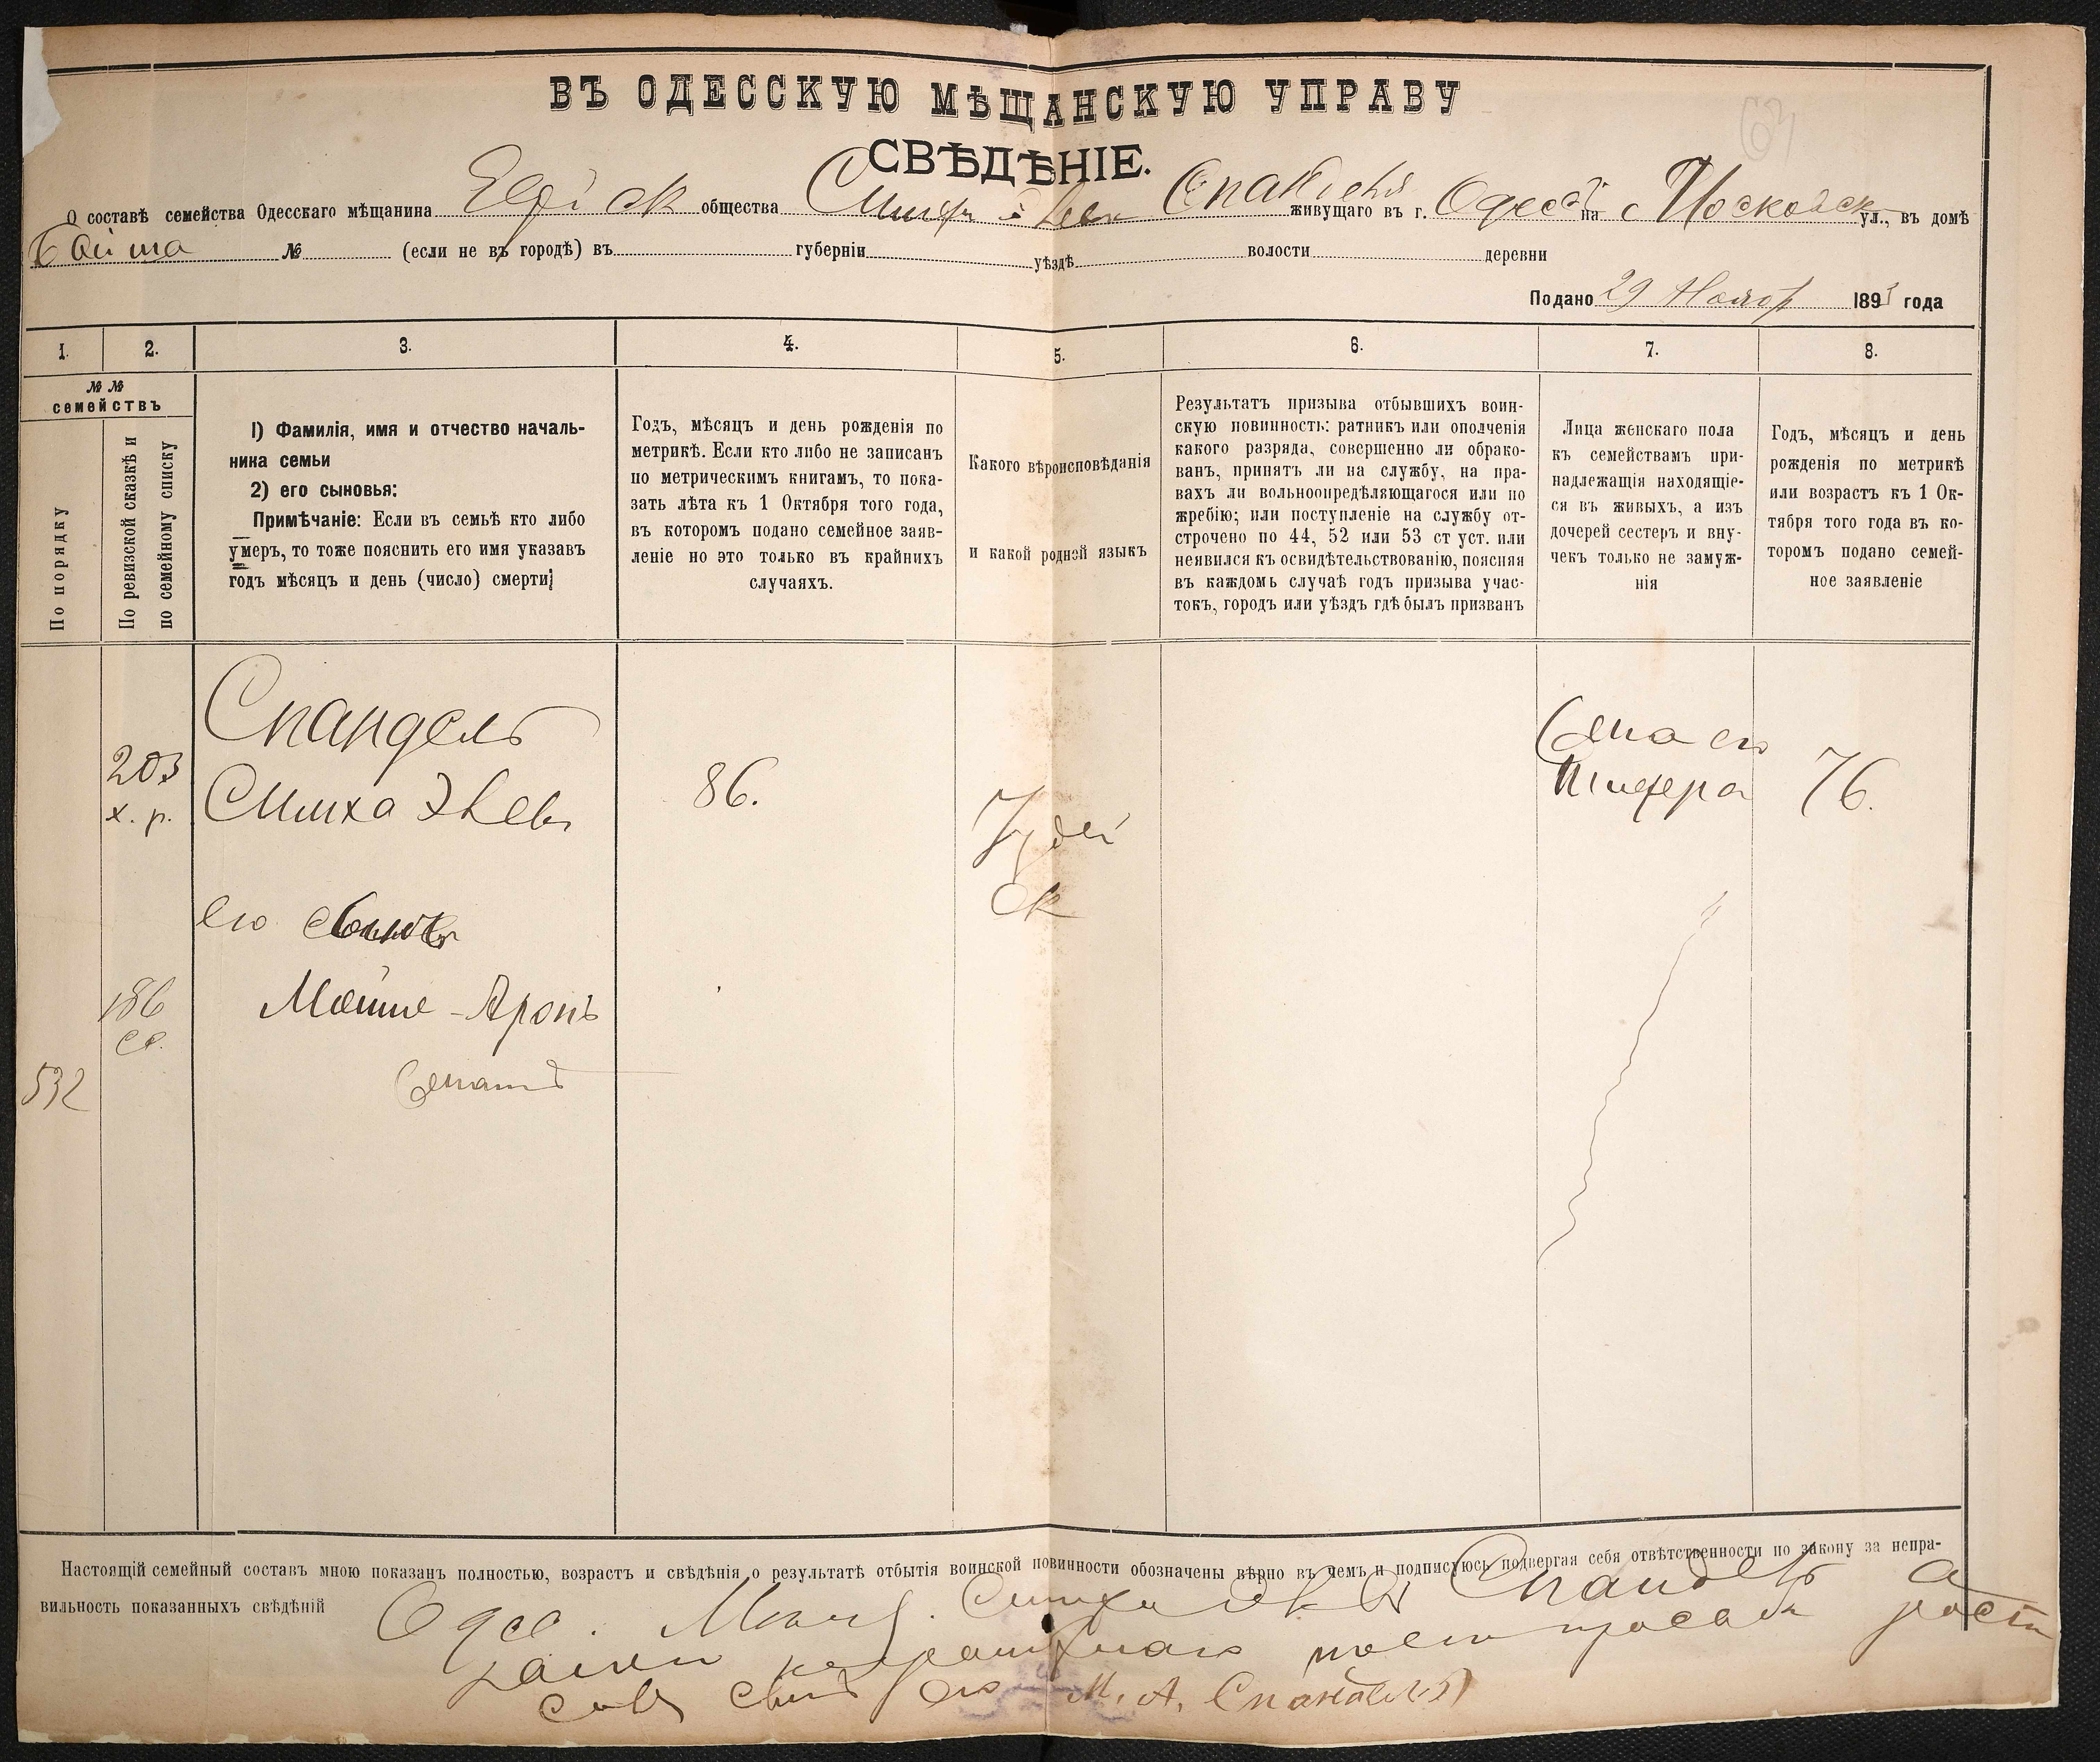 ВЪ ОДЕССКУЮ МѢЩАНСКУЮ УПРАВУ
СВѢДѢНІЕ.
О составѣ семейства Одесскаго мѣщанина общества живущаго въ г. Одес на Московск ул., въ домѣ
№ (если не въ городѣ) въ губерніи уѣздѣ волости деревни
Подано 29 Ноябр 1893 года
1. 2. 3. 4. 5. 6. 7. 8.
№ №
семействъ
По порядку
По ревизской сказкѣ и
по семейному списку
1) Фамилія, имя и отчество началь-
ника семьи
2) его сыновья:
Примѣчаніе: Если въ семьѣ кто либо
умеръ, то тоже пояснить его имя указавъ
годъ мѣсяцъ и день (число) смерти;
Годъ, мѣсяцъ и день рожденія по
метрикѣ. Если кто либо не записанъ
по метрическимъ книгамъ, то пока-
зать лѣта къ 1 Октября того года,
въ которомъ подано семейное заяв-
леніе но это только въ крайнихъ
случаяхъ.
Какого вѣроисповѣданія
и какой родной языкъ
Результатъ призыва отбывшихъ воин-
скую повинность: ратникъ или ополченія
какого разряда, совершенно ли обрако-
ванъ, принятъ ли на службу, на пра-
вахъ ли вольноопредѣляющагося или по
жребію; или поступленіе на службу от-
строчено по 44, 52 или 53 ст уст. или
неявился къ освидѣтельствованію, поясняя
въ каждомъ случаѣ годъ призыва учас-
токъ, городъ или уѣздъ гдѣ былъ призванъ
Лица женскаго пола
къ семействамъ при-
надлежащія находящіе-
ся въ живыхъ, а изъ
дочерей сестеръ и вну-
чекъ только не замуж-
нія
Годъ, мѣсяцъ и день
рожденія по метрикѣ
или возрастъ къ 1 Ок-
тября того года въ ко-
торомъ подано семей-
ное заявленіе
Спандель
203
х. р.
Симха
86.
Іудей
ск
Жена его
76.
его
186
Мойше-Аронъ
532
Настоящій семейный составъ мною показанъ полностью, возрастъ и свѣдѣнія о результатѣ отбытія воинской повинности обозначены вѣрно въ чемъ и подписуюсь подвергая себя отвѣтственности по закону за непра-
вильность показанныхъ свѣдѣній
Одес. Мѣщ. Симха Спандель а
М. А. Спандель